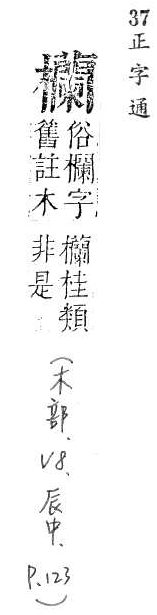 37正字通
欗
俗欄字
舊註木
欗桂類
非是
（木部、V8、辰中、P.123）